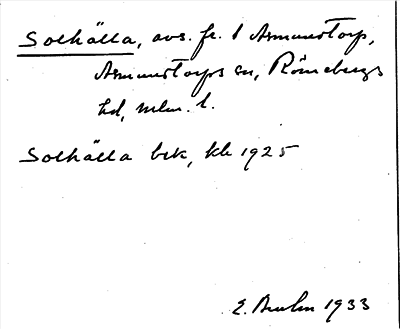 Solhälla, avs. fr. 1 Asmundtorp,
Asmundtorps sn, Rönnebergs
hd, Mlm. l.
Solhälla bek, kk 1925
E. Bruhn 1933